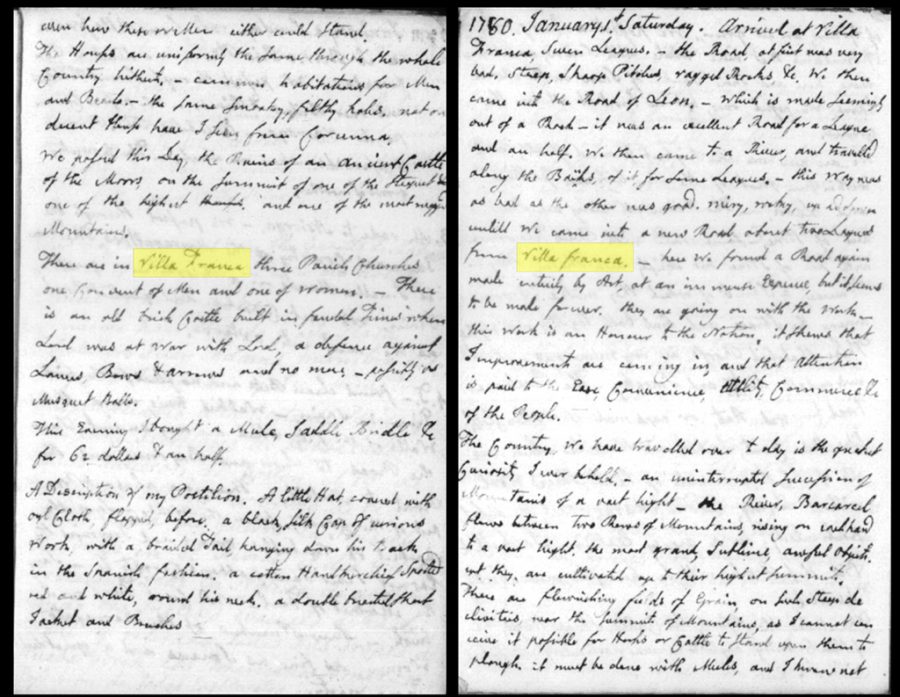 even how these Mules either could stand.
The Houses are uniformly the same through the whole
Country hitherto, — common habitations for Men
and Beasts. — the same smoaky, filthy holes. not one
decent House have I seen from Corunna.
We passed this Day, the Ruins of an ancient Castle
of the Moors, on the Summit of one of the steepest and
one of the highest and one of the most rugged
Mountains.
There are in Villa Franca three Parish Churches
one Convent of Men and one of Women. — There
is an old brick Castle built in feudal Times when
Lord was at War with Lord, a defence against
Lances, Bows & arrows and no more, — possibly vs
Musquet Balls.
This Evening I bought a Mule, Saddle Bridle &c
for 62 dollars & an half.
A Description of my Postilion. A little Hat, covered with
oyl Cloth, flapped, before, a black, silk Cap of curious
Work, with a braided Tail, hanging down his Back
in the Spanish fashion. a cotton Handkerchief spotted
red and white, around his neck. a double breasted short
Jacket and Breeches
1780. January 1st. Saturday. — Arrived at Villa
Franca Seven Leagues. — the Road, at first was very
bad. Steep, sharp Pitches, ragged Rocks, &c. We then
came into the Road of Leon, — which is made seemingly
out of a Rock — it was an excellent Road for a League
and an half. We then came to a River, and travelled
along the Banks, of it for some Leagues. — this Way was
as bad as the other was good. miry, rocky, up and down
untill We came into a new Road, about two Leagues
from Villa franca. — here We found a Road again
made entirely by Art, at an immense Expence, but it seems
to be made forever. they are going on with the Work. —
this Work is an Honour to the Nation. it shews that
Improvements are coming in, and that Attention
is paid to the Ease, Convenience, Utility, Commerce &c
of the People.
The Country, We have travelled over to day is the greatest
Curiosity I ever beheld, — an uninterrupted succession of
Mountains of a vast hight — the River, Barcarcel
flows between two Rows of Mountains, rising on each hand
to a vast hight, the most grand, sublime, awful objects,
yet they are cultivated up to their highest summits.
There are flourishing fields of Grain, on such steep de
clivities, near the summits of Mountains, as I cannot con
ceive it possible for Horses or Cattle to stand upon them to
plough. it must be done with Mules, and I know not